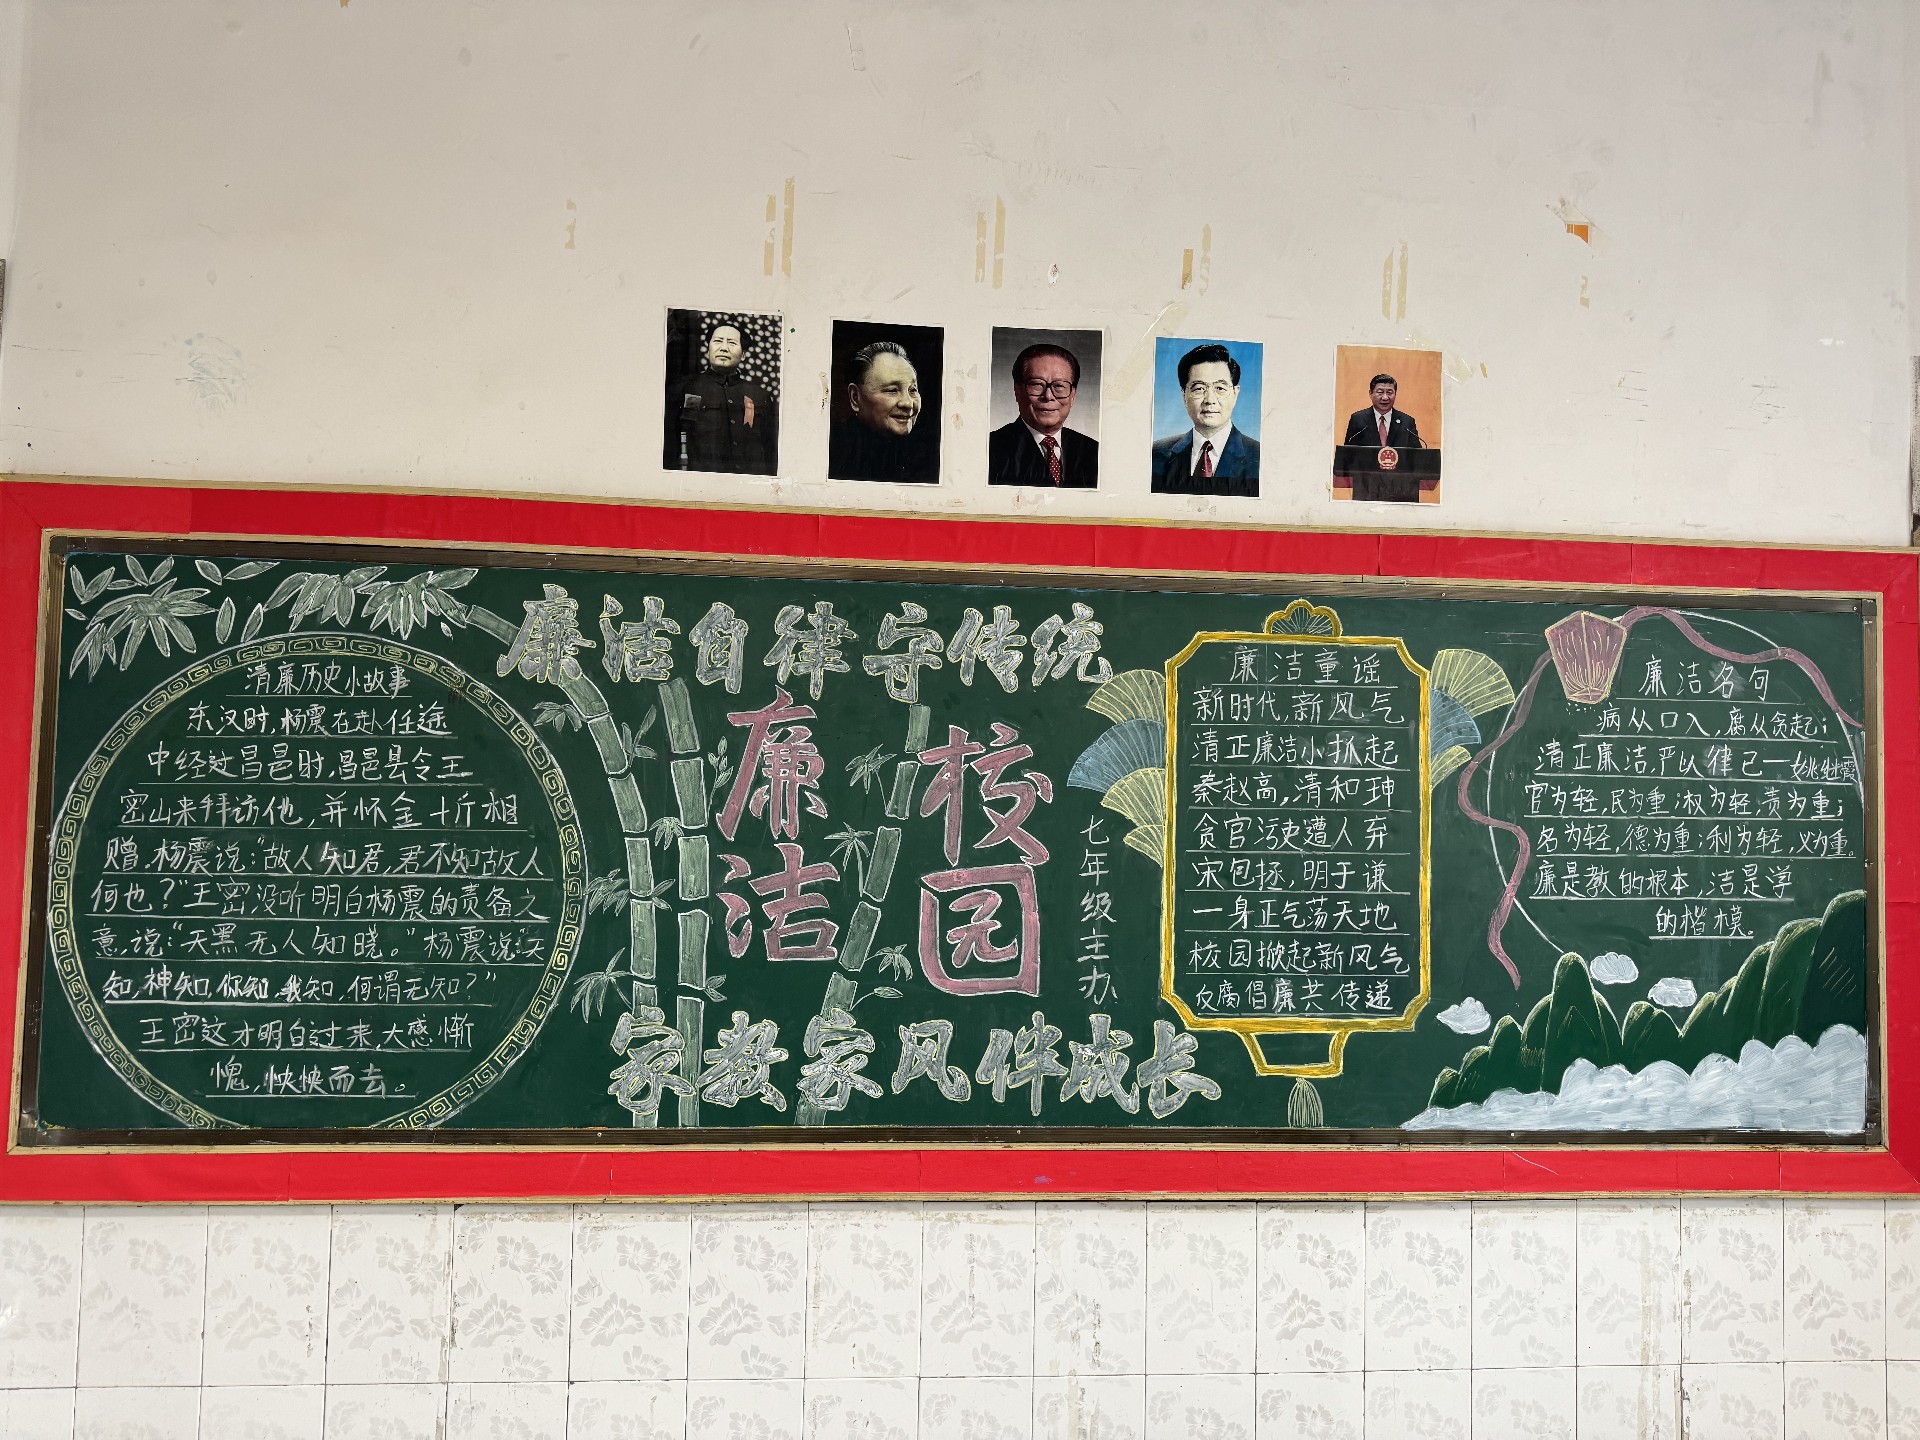 廉洁自律守传统
廉洁
校园
七年级主办
家教家风伴成长
清廉历史小故事
东汉时,杨震在赴任途
中经过昌邑时,昌邑县令王
密山来拜访他,并怀金十斤相
赠,杨震说:"故人知君,君不知故人
何也?"王密没听明白杨震的责备之
意,说:"天黑无人知晓。"杨震说:"天
知,神知,你知,我知,何谓无知?"
王密这才明白过来,大感惭
愧,怏怏而去。
廉洁童谣
新时代,新风气
清正廉洁小抓起
秦赵高,清和珅
贪官污吏遭人弃
宋包拯,明于谦
一身正气荡天地
校园掀起新风气
反腐倡廉共传递
廉洁名句
病从口入,腐从贪起;
清正廉洁,严以律己一姚壮霞
官为轻,民为重;权为轻,责为重;
名为轻,德为重;利为轻,义为重。
廉是教的根本,洁是学
的楷模。